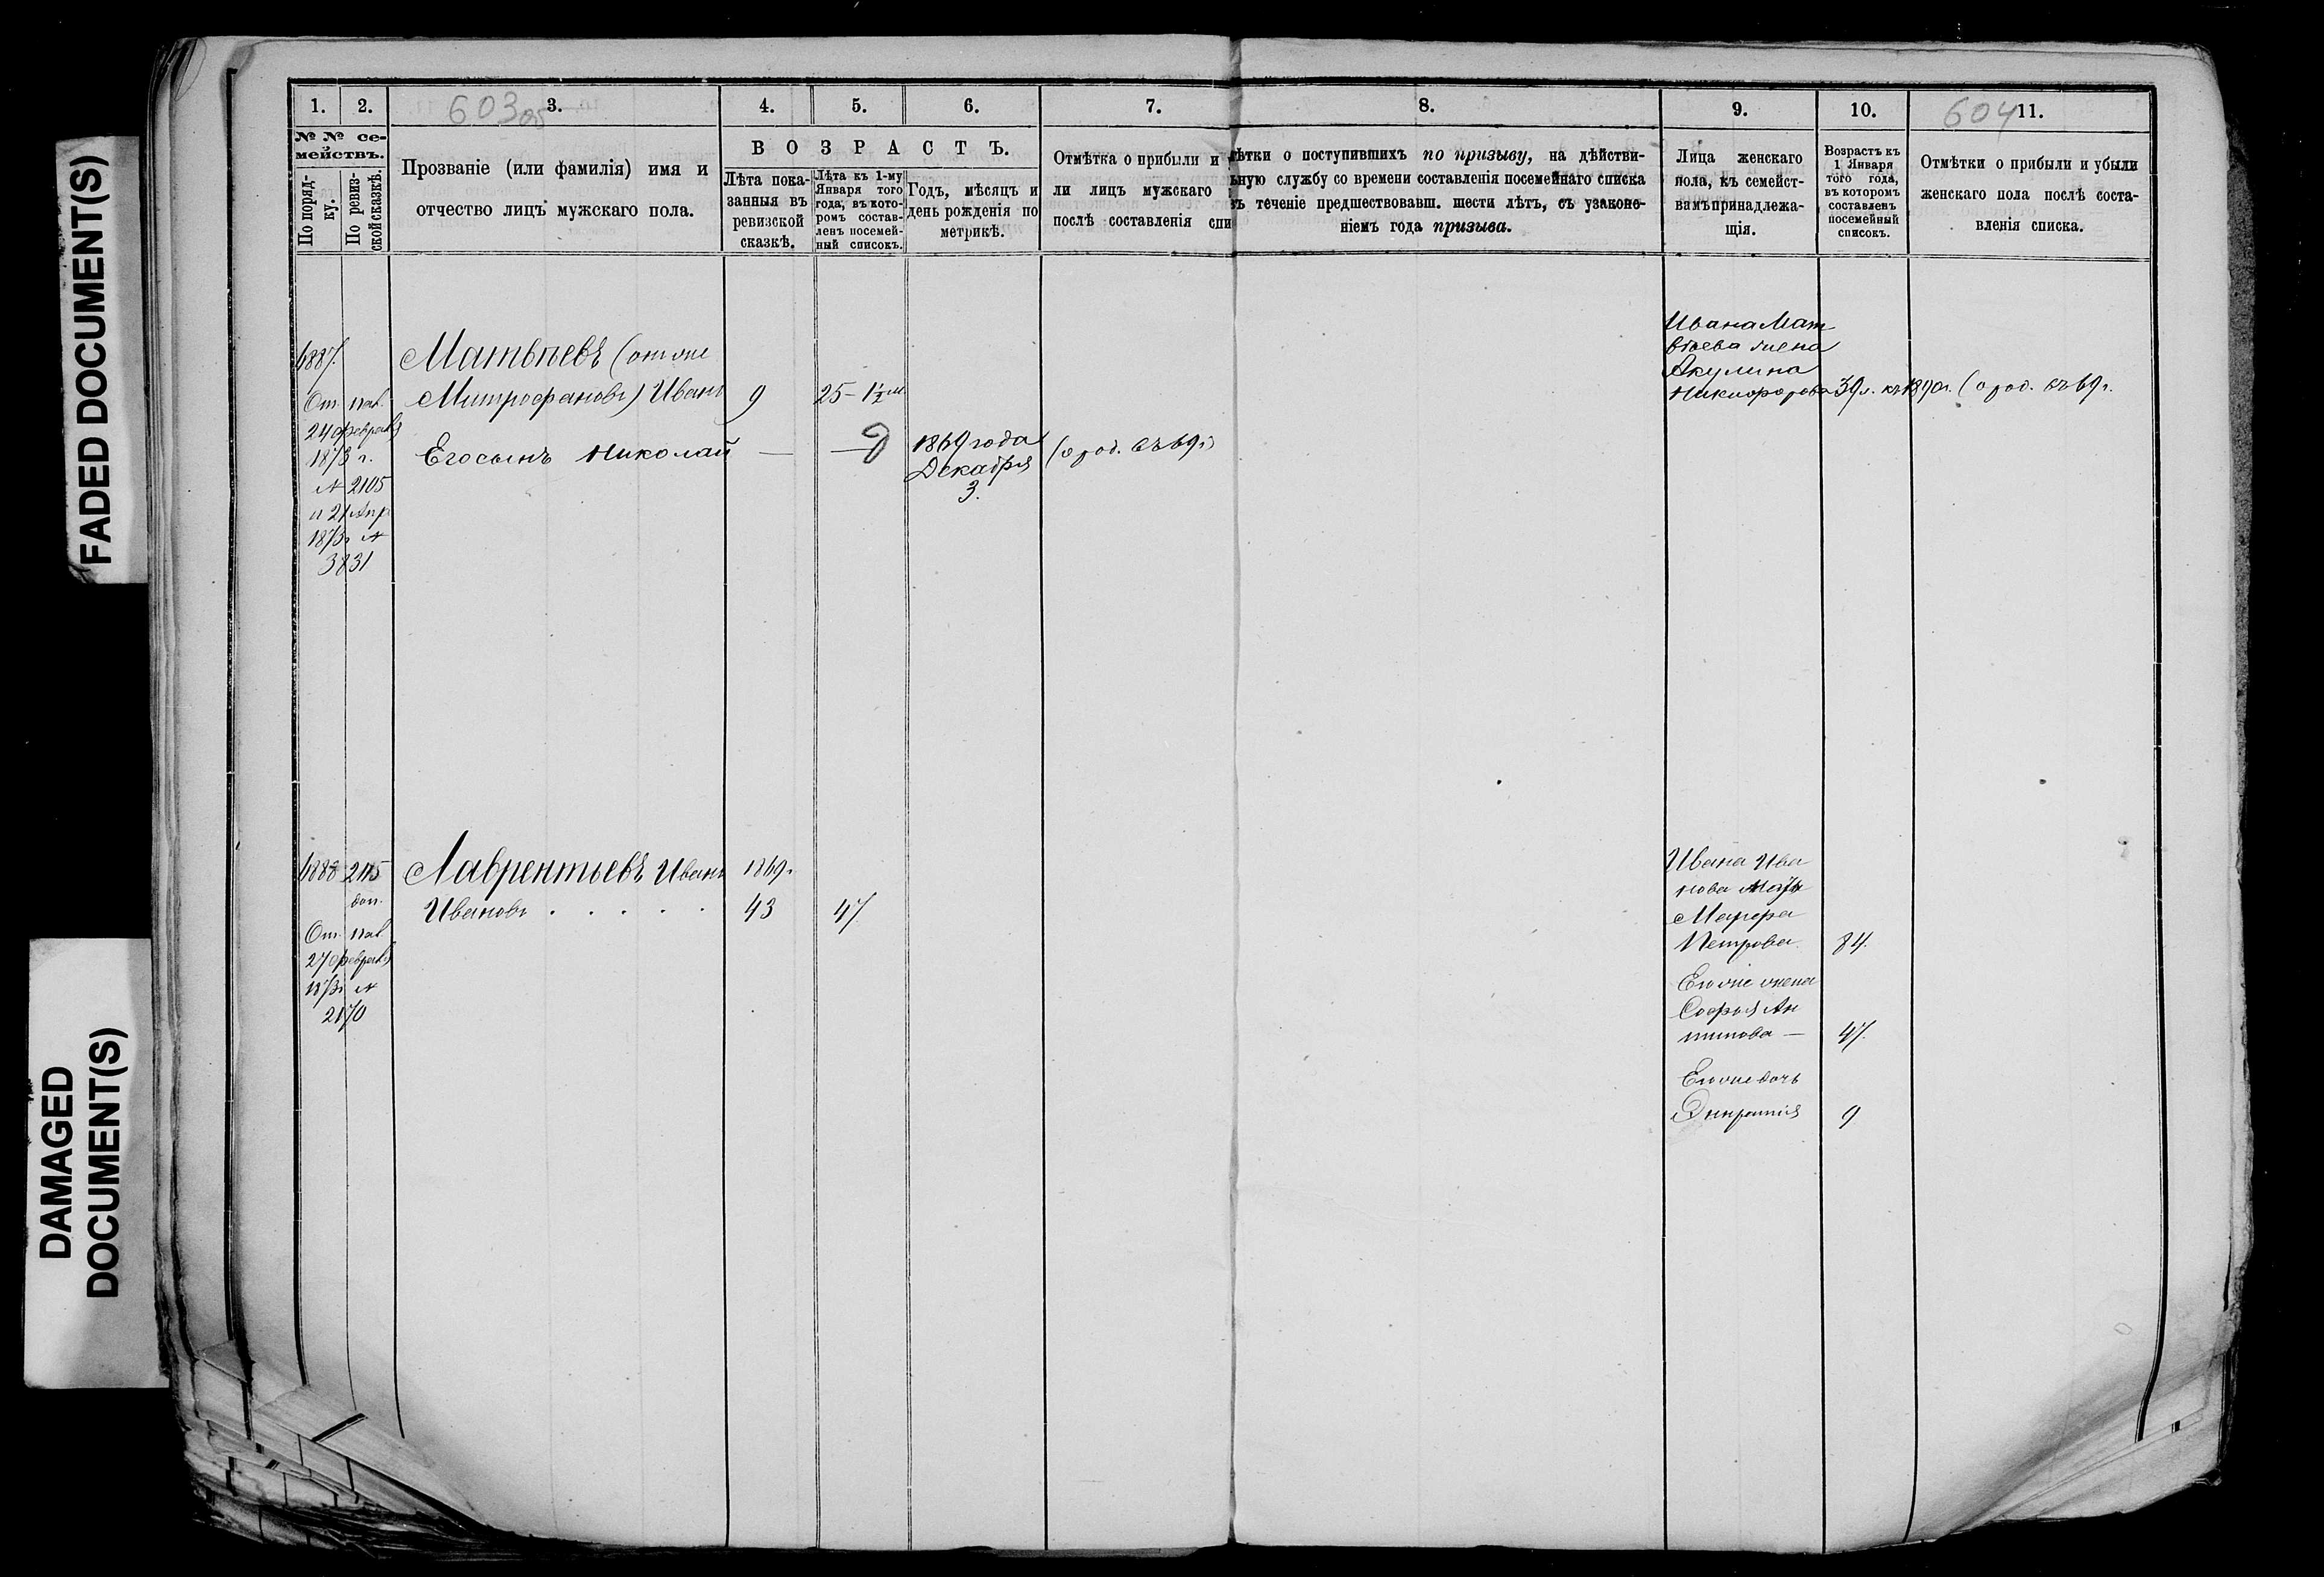 FADED DOCUMENT(S)
DAMAGED
DOCUMENT(S)
603 об
604
1.
2.
3.
4.
5.
6.
7.
8.
9.
10.
11.
№ № се-
мействъ.
По поряд-
ку.
По ревиз-
ской сказкѣ.
Прозваніе (или фамилія) имя и
отчество лицъ мужскаго пола.
ВОЗРАСТЪ.
Лѣта пока-
занныя въ
ревизской
сказкѣ.
Лѣта къ 1-му
Января того
года, въ кото-
ромъ состав-
ленъ посемей-
ный списокъ.
Годъ, мѣсяцъ и
день рожденія по
метрикѣ.
Отмѣтка о прибыли и
ли лицъ мужскаго
послѣ составленія спи
ѣтки о поступившихъ по призыву, на дѣйстви-
ьную службу со времени составленія посемейнаго списка
въ теченіе предшествовавш. шести лѣтъ, съ узаконе-
ніемъ года призыва.
Лица женскаго
пола, къ семейст-
вамъ принадлежа-
щія.
Возрастъ къ
1 Января
того года,
въ которомъ
составленъ
посемейный
списокъ.
Отмѣтки о прибыли и убыли
женскаго пола послѣ соста-
вленія списка.
6887.
От. пал.
24 февраля
1873 г.
№ 2105
и 21 Апр
1873 г №
3831
Матвѣевъ (онъ же
Митрофановъ) Иванъ
9
25 – 1½ м
Его сынъ Николай
—
1869 года
Декабря
3.
(о род. съ 69 г)
Ивана Мат
вѣева жена
Акулина
Никифорова
39 л. къ 1890 г. (о род. съ 69 г.
6888
2115
доп.
От. пал
27 февраля
1873 г №
2170
Лаврентьевъ Иванъ
Ивановъ . . . . .
1869 г
43
47
Ивана Ива
нова мать
Марфа
Петрова
84.
Его же жена
Софья Ан
типова —
47.
Его же дочь
9